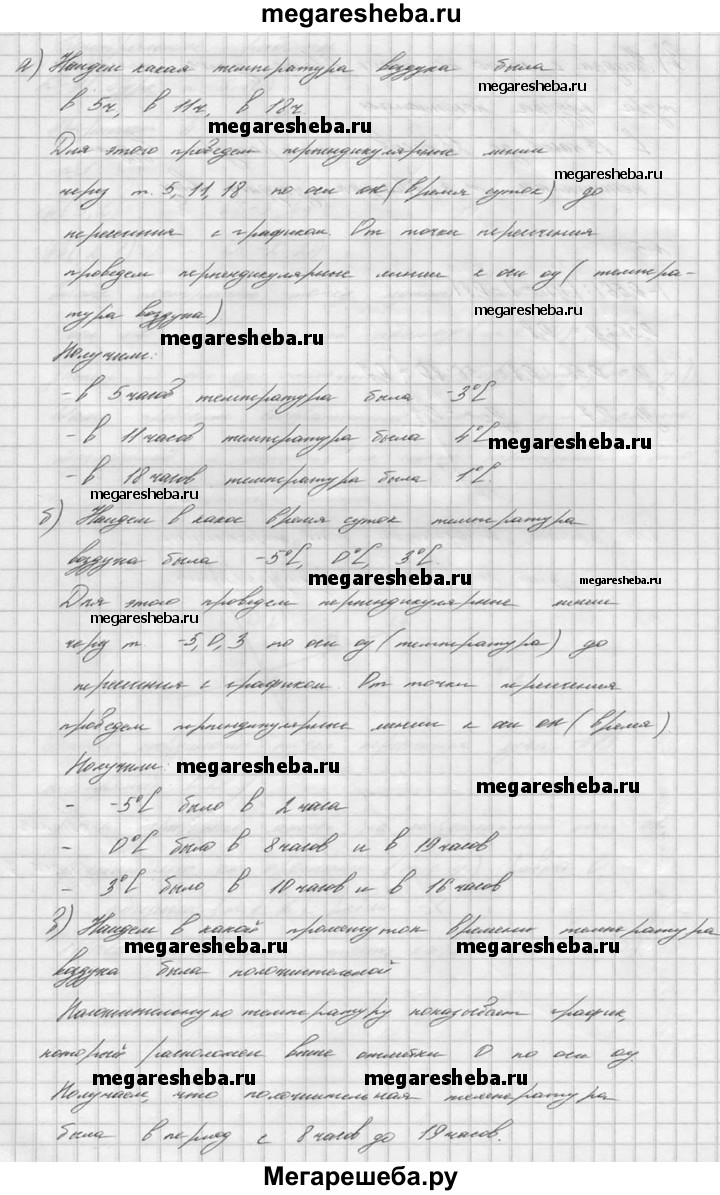 megaresheba.ru
а) Найдем какая температура воздуха была
megaresheba.ru
в 5ч, в 11ч, в 18ч
megaresheba.ru
Для этого проведем перпендикулярные линии
megaresheba.ru
через т. 5, 11, 18 по оси ох (время суток) до
пересечения с графиком. От точки пересечения
проведем перпендикулярные линии к оси оу (темпера-
megaresheba.ru
тура воздуха)
megaresheba.ru
Получили:
- в 5 часов температура была -3°С
- в 11 часов температура была 4°С
megaresheba.ru
- в 18 часов температура была 1°С.
megaresheba.ru
б) Найдем в какое время суток температура
воздуха была -5°С, 0°С, 3°С.
megaresheba.ru
megaresheba.ru
Для этого проведем перпендикулярные линии
megaresheba.ru
через т. -5, 0, 3 по оси оу (температура) до
пересечения с графиком. От точки пересечения
проведем перпендикулярные линии к оси ох (время)
Получили:
megaresheba.ru
megaresheba.ru
- -5°С было в 2 часа
- 0°С было в 8 часов и в 19 часов
- 3°С было в 10 часов и в 16 часов
в) Найдем в какой промежуток времени температура
megaresheba.ru
megaresheba.ru
воздуха была положительной
Положительную температуру показывает график,
который расположен выше отметки 0 по оси оу.
megaresheba.ru
megaresheba.ru
Получаем, что положительная температура
была в период с 8 часов до 19 часов.
Мегарешеба.ру